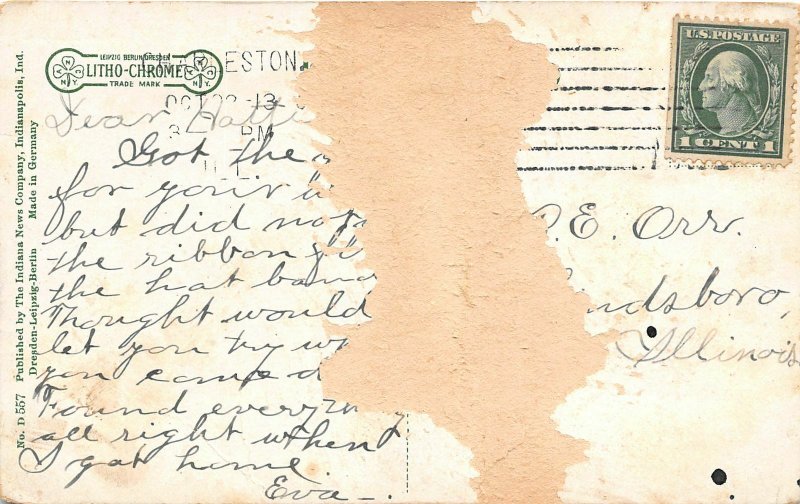 No. D 557 Published by The Indiana News Company, Indianapolis, Ind.
Dresden-Leipzig-Berlin Made in Germany
LEIPZIG BERLIN DRESDEN
LITHO-CHROME
TRADE MARK
ESTON
OCT 22 13
PM
U.S. POSTAGE
1 CENT 1
Dear Hatti
Got the
for your
but did not
the ribbon
the hat band
Thought would
let you try
you came d
Found every
all right when
I got home.
Eva-.
P.E. Orr.
ndsboro,
Illinois